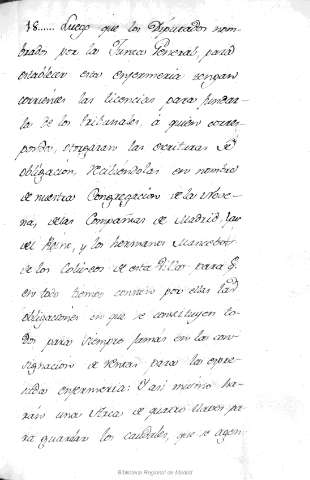 18...... Luego que los Diputados nom-
brados por la Junta General, para
establecer esta enfermeria tengan
corrientes las licencias para fundar-
la de los tribunales, à quien corres-
ponda, otorgaran las escrituras de
obligacion, reciviendolas en nombre
de nuestra Congregacion de la Nove-
na, delas Compañias de Madrid,
del Reino, y los hermanos Mancebos
de los Coliseos de esta Villa para q.
en todo tiempo conste por ellas las
obligaciones en que se constituyen to-
dos para siempre jamàs en la con-
signacion de rentas para la expre-
sada enfermeria: Y asi mismo ha-
ràn una Arca de quatro llaves pa-
ra guardar los caudales, que se agen-
Biblioteca Regional de Madrid